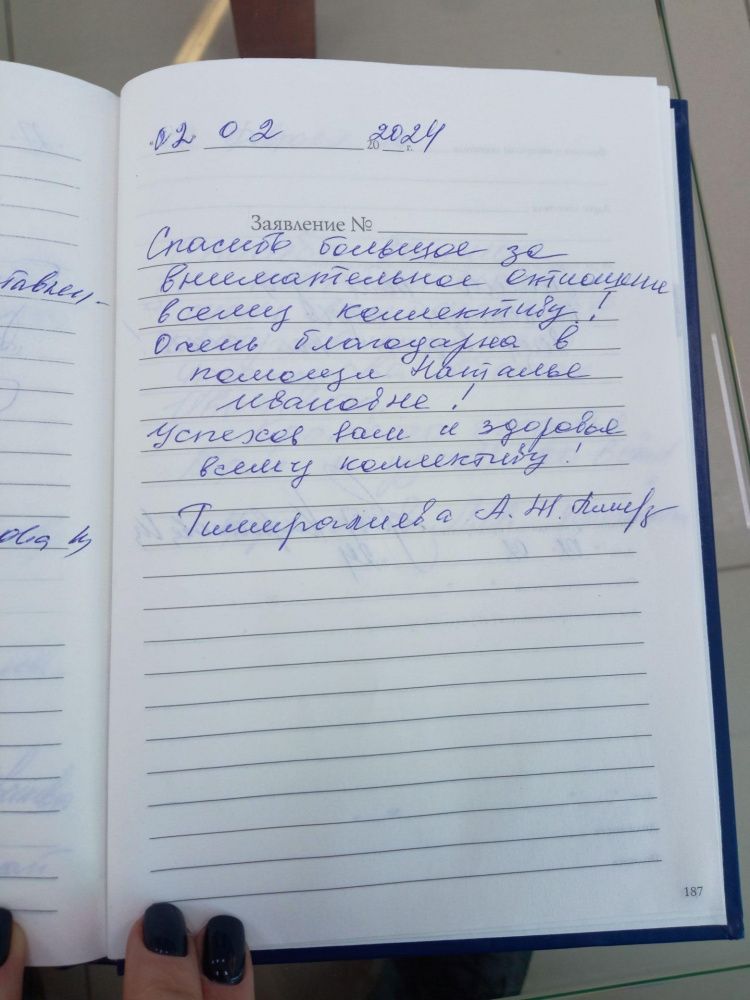 «02» 02 2024
20 г.
Заявление №
Спасибо большое за
внимательное отношение
всему коллективу!
Очень благодарна в
помощи Наталье
Ивановне!
Успехов вам и здоровья
всему коллективу!
Тимиралиева А.Ж.
187